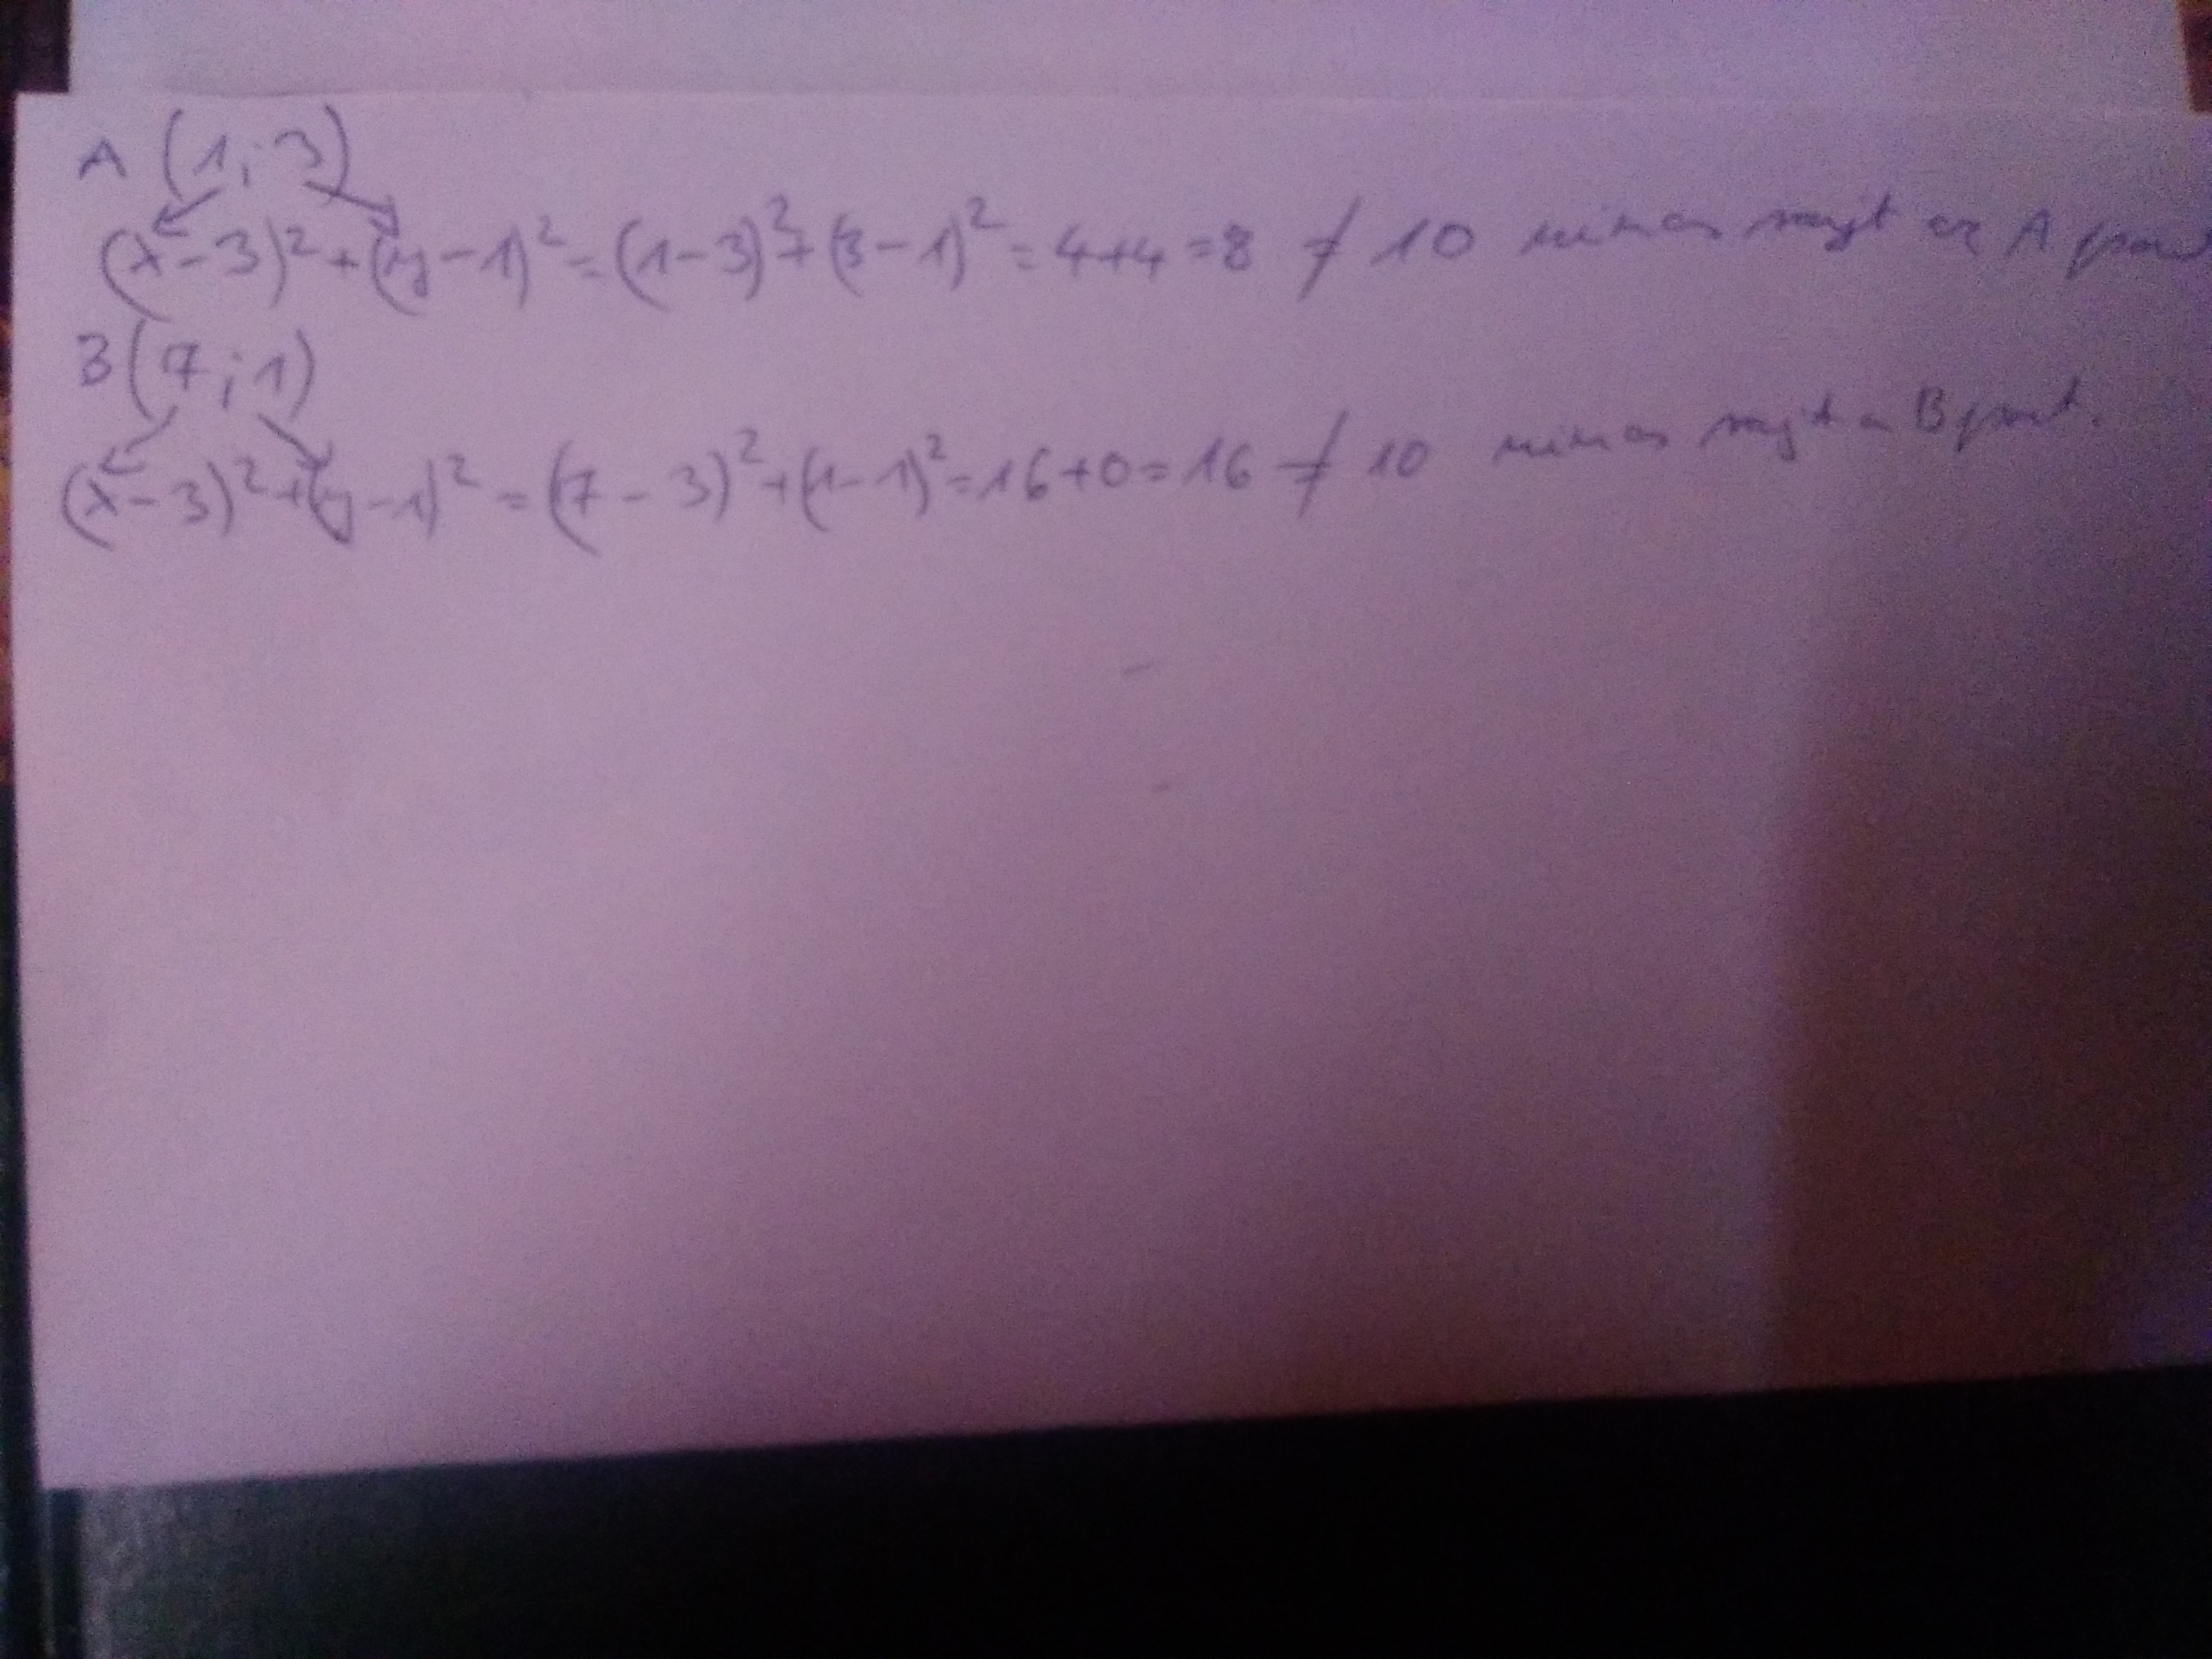 A (1; 3)
(x-3)² + (y-1)² = (1-3)² + (3-1)² = 4+4 = 8 ≠ 10 nincs rajt az A pont
B (7; 1)
(x-3)² + (y-1)² = (7-3)² + (1-1)² = 16+0 = 16 ≠ 10 nincs rajt a B pont.